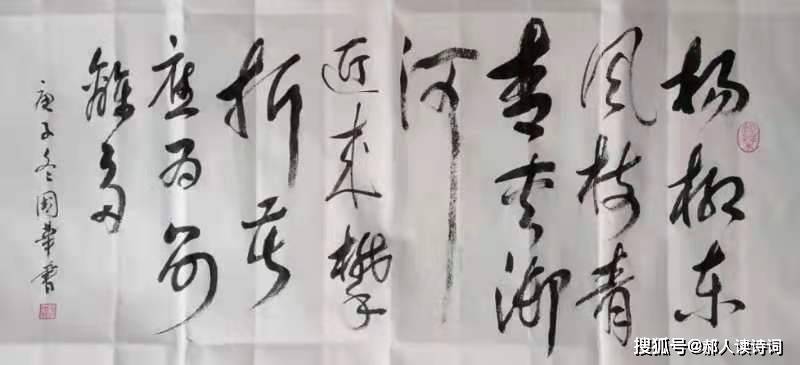 杨柳东
风枝青
青夹御
河
近来攀
折苦
應为别
離多
庚子冬国華書
搜狐号@郝人读诗词